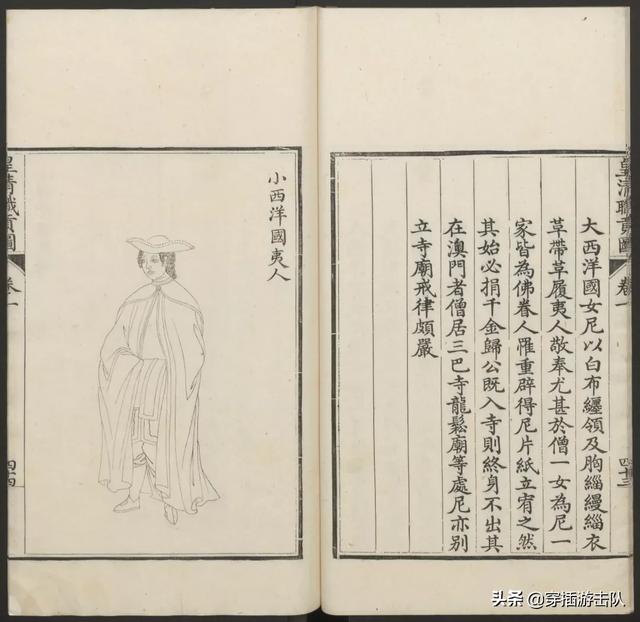 大西洋國女尼以白布纏領及胸緇縵緇衣
草帶草履夷人敬奉尤甚於僧一女為尼一
家皆為佛眷人罹重辟得尼片紙立宥之然
其始必捐千金歸公既入寺則終身不出其
在澳門者僧居三巴寺龍鬆廟等處尼亦別
立寺廟戒律頗嚴
皇清職貢圖
卷一
四十三
小西洋國夷人
皇清職貢圖
卷一
四十四
头条 @穿插游击队